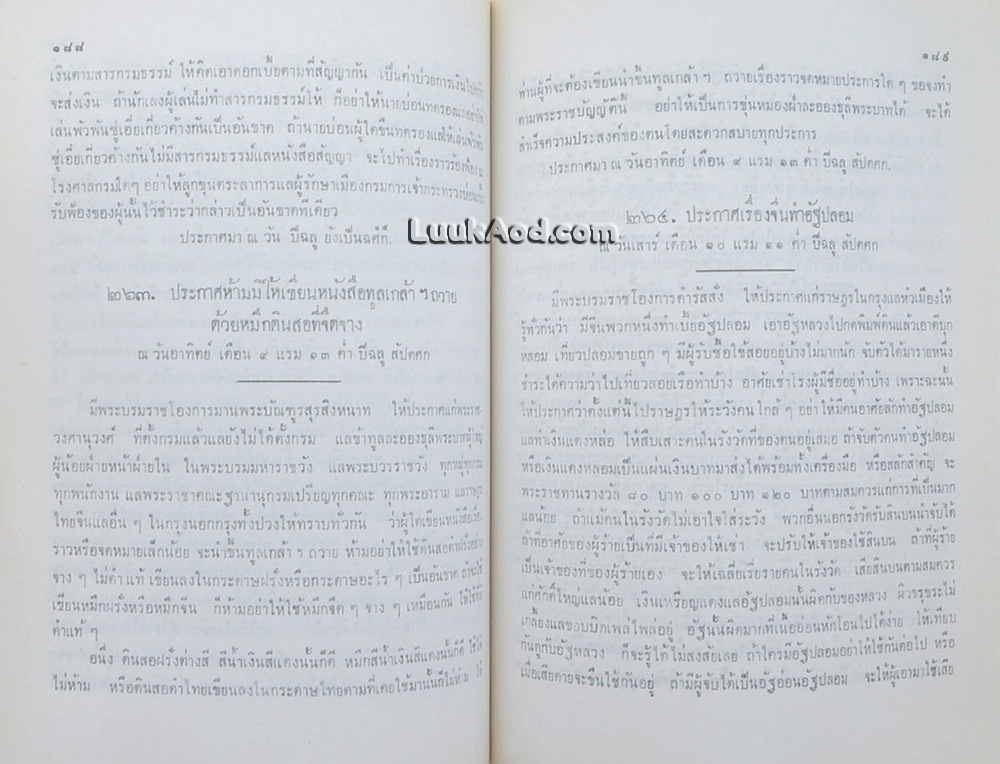 ๑๘๘
เงินตามสารกรมธรรม์ ให้คิดเอาดอกเบี้ยตามที่สัญญากัน เป็นค่าป่วยการเงินไปกว่า
จะส่งเงิน ถ้านักเลงผู้เล่นไม่ทำสารกรมธรรม์ให้ ก็อย่าให้นายบ่อนทดรองแลอย่าให้
เล่นพัวพันชู่เอี่ยเกี่ยวค้างกันเป็นอันขาด ถ้านายบ่อนผู้ใดขืนทดรองแลให้เล่นพัวพัน
ชู่เอี่ยเกี่ยวค้างกันไม่มีสารกรมธรรม์แลหนังสือสัญญา จะไปทำเรื่องราวร้องฟ้อง ณ
โรงศาลกรมใดๆ อย่าให้ลูกขุนตระลาการแลผู้รักษาเมืองกรมการเจ้ากระทรวง
รับฟ้องของผู้นั้นไว้ชำระว่ากล่าวเป็นอันขาดทีเดียว
ประกาศมา ณ วัน ปีฉลู ยังเป็นฉศก.
๒๖๓. ประกาศห้ามมิให้เขียนหนังสือทูลเกล้า ฯ ถวาย
ด้วยหมึกดินสอที่จืดจาง
ณ วันอาทิตย์ เดือน ๙ แรม ๑๓ ค่ำ ปีฉลู สัปตศก
มีพระบรมราชโองการมานพระบัณฑูรสุรสิงหนาท ให้ประกาศแก่พระราช-
วงศานุวงศ์ ที่ตั้งกรมแล้วแลยังไม่ได้ตั้งกรม แลข้าทูลละอองธุลีพระบาทผู้ใหญ่
ผู้น้อยฝ่ายหน้าฝ่ายใน ในพระบรมมหาราชวัง แลพระบวรราชวัง ทุกหมู่ทุกกรม
ทุกพนักงาน แลพระราชาคณะฐานานุกรมเปรียญทุกคณะ ทุกพระอาราม แลราษฎร
ไทยจีนแลอื่น ๆ ในกรุงนอกกรุงทั้งปวงให้ทราบทั่วกัน ว่าผู้ใดเขียนหนังสือเรื่อง
ราวหรือจดหมายเล็กน้อย จะนำขึ้นทูลเกล้า ฯ ถวาย ห้ามอย่าให้ใช้ดินสอดำฝรั่งอย่าง
จาง ๆ ไม่ดำแท้ เขียนลงในกระดาษฝรั่งหรือกระดาษอะไร ๆ เป็นอันขาด ถ้าจะใช้
เขียนหมึกฝรั่งหรือหมึกจีน ก็ห้ามอย่าให้ใช้หมึกจืด ๆ จาง ๆ เหมือนกัน ให้ใช้
ดำแท้ ๆ
อนึ่ง ดินสอฝรั่งต่างสี สีน้ำเงินสีแดงนั้นก็ดี หมึกสีน้ำเงินสีแดงนั้นก็ดี ใช้ได้
ไม่ห้าม หรือดินสอดำไทยเขียนลงในกระดาษไทยตามที่เคยใช้มานั้นก็ไม่ห้าม
๑๘๙
ท่านผู้ที่จะต้องเขียนนำขึ้นทูลเกล้า ฯ ถวายเรื่องราวจดหมายประการใด ๆ ของจงทำ
ตามพระราชบัญญัตินี้ อย่าให้เป็นการขุ่นหมองฝ่าละอองธุลีพระบาทได้ จะได้
สำเร็จความประสงค์ของตนโดยสะดวกสบายทุกประการ
ประกาศมา ณ วันอาทิตย์ เดือน ๙ แรม ๑๓ ค่ำ ปีฉลู สัปตศก.
๒๖๔. ประกาศเรื่องจีนทำอัฐปลอม
LuukAod.com
ณ วันเสาร์ เดือน ๑๐ แรม ๑๑ ค่ำ ปีฉลู สัปตศก
มีพระบรมราชโองการดำรัสสั่ง ให้ประกาศแก่ราษฎรในกรุงแลหัวเมืองให้
รู้ทั่วกันว่า มีจีนพวกหนึ่งทำเบี้ยอัฐปลอม เอาอัฐหลวงไปกดพิมพ์ดินแล้วเอาดีบุก
หลอม เที่ยวปลอมขายถูก ๆ มีผู้รับซื้อใช้สอยอยู่บ้างไม่มากนัก จับตัวได้มารายหนึ่ง
ชำระได้ความว่าไปเที่ยวลอยเรือทำบ้าง อาศัยเช่าโรงผู้มีชื่ออยู่ทำบ้าง เพราะฉะนั้น
ให้ประกาศว่าตั้งแต่นี้ไปราษฎรให้ระวังคนใกล้ ๆ อย่าให้มีคนอาศัยลักทำอัฐปลอม
แลทำเงินแดงหล่อ ให้สืบเสาะคนในรังวัดที่ของตนอยู่เสมอ ถ้าจับตัวคนทำอัฐปลอม
หรือเงินแดงหลอมเป็นแผ่นเงินบาทมาส่งได้พร้อมทั้งเครื่องมือ หรือสลักสำคัญ จะ
พระราชทานรางวัล ๘๐ บาท ๑๐๐ บาท ๑๒๐ บาทตามสมควรแก่การที่เป็นมาก
แลน้อย ถ้าแม้คนในรังวัดไม่เอาใจใส่ระวัง พวกอื่นนอกรังวัดรับสินบนนำจับได้
ถ้าที่อาศัยของผู้ร้ายเป็นที่มีเจ้าของให้เช่า จะปรับให้เจ้าของใช้สินบน ถ้าที่ผู้ร้าย
เป็นเจ้าของที่ของผู้ร้ายเอง จะให้เฉลี่ยเรี่ยรายคนในรังวัด เสียสินบนตามสมควร
แก่ศักดิ์ใหญ่แลน้อย เงินเหรียญแดงแลอัฐปลอมนั้นผิดกับของหลวง ผิวขรุขระไม่
เกลี้ยงแลขอบบิดเพล่ไพล่อยู่ อัฐนั้นผิดมากที่เนื้ออ่อนหักโอนไปได้ง่าย ให้เทียบ
กันดูกับอัฐหลวง ก็จะรู้ได้ไม่สงสัยเลย ถ้าใครมีอัฐปลอมอย่าให้ใช้กันต่อไป หรือ
เพื่อเสียดายจะขืนใช้กันอยู่ ถ้ามีผู้จับได้เป็นอัฐอ่อนอัฐปลอม จะให้ผู้เอามาใช้เสีย